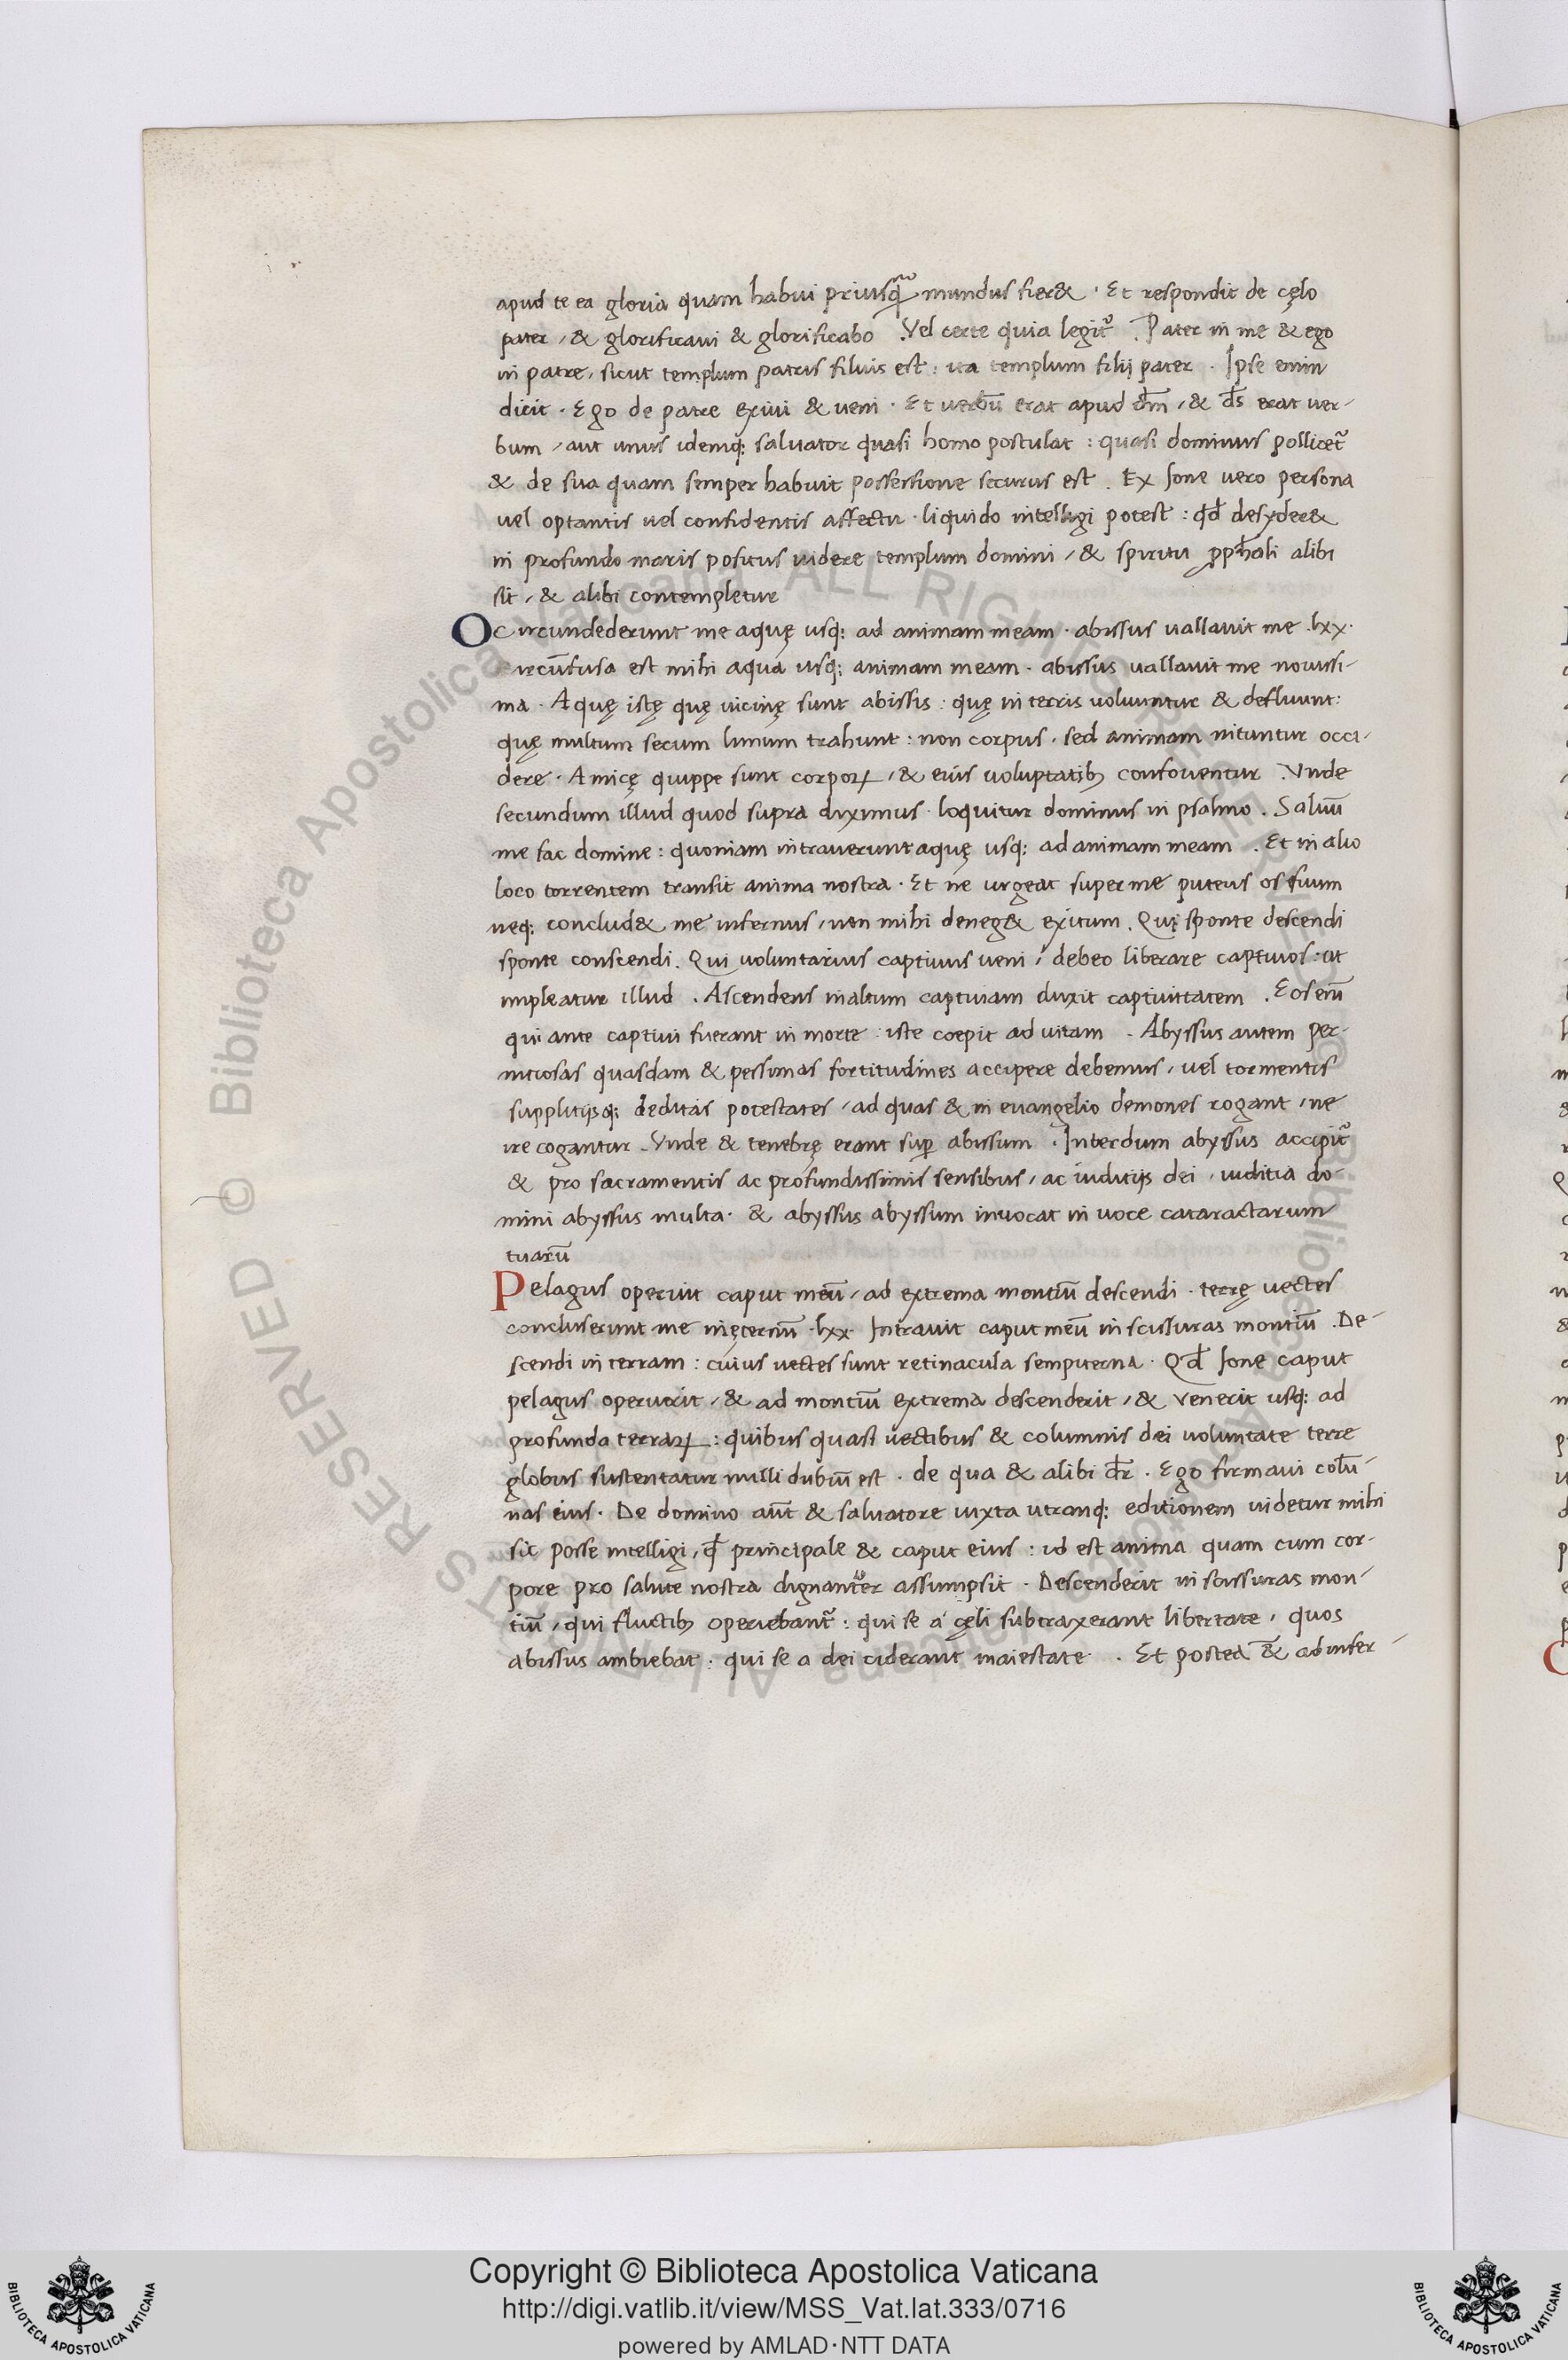 apud te ea gloria quam habui priusq̃ mundus fier& · Et respondit de cęlo
pater, & glorificaui & glorificabo . Vel certe quia legit᷑ . Pater in me & ego
in patre, sicut templum patris filius est: ita templum filij pater . Ipse enim
dicit . Ego de patre exiui & ueni . Et uerbū erat apud dm̄, & ds̄ erat uer-
bum, aut unus idemq; saluator quasi homo postulat : quasi dominus pollicet᷑
& de sua quam semper habuit possessione securus est . Ex Ione vero persona
uel optantis uel confidentis affectu · liquido intelligi potest : qd̄ desyder&
in profundo maris positus uidere templum domini, & spiritu ꝓph̄ali alibi
sit, & alibi contempletur
O Circundederunt me aquę usq; ad animam meam · abissus uallauit me .lxx.
ircūfusa est mihi aqua usq; animam meam . abissus uallauit me nouissi-
ma . Aquę istę quę uicinę sunt abissis : quę in terris uoluuntur & defluunt:
quę multum secum limum trahunt : non corpus . sed animam nituntur occi-
dere . Amicę quippe sunt corporꝝ, & eius uoluptatibꝫ confouentur . Vnde
secundum illud quod supra diximus · loquitur dominus in psalmo . Saluū
me fac domine : quoniam intrauerunt aquę usq; ad animam meam . Et in alio
loco torrentem transit anima nostra . Et ne urgeat super me puteus os suum
neq; conclud& me infernus, non mihi deneg& exitum . Qui sponte descendi
sponte conscendi . Qui uoluntarius captiuus ueni, debeo liberare captiuos : ut
impleatur illud . Ascendens in altum captiuam duxit captiuitatem . Eos enī
qui ante captiui fuerant in morte : iste coepit ad uitam . Abyssus autem per-
nitiosas quasdam & pessimas fortitudines accipere debemus, uel tormentis
supplitijsq; deditas potestates, ad quas & in euangelio demones rogant, ne
ire cogantur . Vnde & tenebrę erant sup̱ abissum . Interdum abyssus accipit᷑
& pro sacramentis ac profundissimis sensibus, ac iuditijs dei, iuditia do-
mini abyssus multa . & abyssus abyssum inuocat in uoce cataractarum
tuarū
Pelagus operuit caput meū, ad extrema montiū descendi . terrę uectes
concluserunt me in ęternū .lxx. Intrauit caput meū in scissuras montiū . De-
scendi in terram : cuius uectes sunt retinacula sempiterna . Qd̄ Ione caput
pelagus operuerit, & ad montiū extrema descenderit, & venerit usq; ad
profunda terraꝝ : quibus quasi uectibus & columnis dei uoluntate terre
globus sustentatur nulli dubiū est . de qua & alibi dr̄ . Ego firmaui colū-
nas eius . De domino aūt & saluatore iuxta utranq; editionem uidetur mihi
sic posse intelligi, qd̄ principale & caput eius : id est anima quam cum cor-
pore pro salute nostra dignanter assumpsit . Descenderit in scissuras mon-
tiū, qui fluctibꝫ operiebant᷑ : qui se a cęli subtraxerant libertate, quos
abissus ambiebat . qui se a dei ciderant maiestate . Et postea & ad infer-
Copyright © Biblioteca Apostolica Vaticana
http://digi.vatlib.it/view/MSS_Vat.lat.333/0716
powered by AMLAD·NTT DATA
BIBLIOTECA APOSTOLICA VATICANA
BIBLIOTECA APOSTOLICA VATICANA
© Biblioteca Apostolica Vaticana ALL RIGHTS RESERVED
© Biblioteca Apostolica Vaticana ALL RIGHTS RESERVED